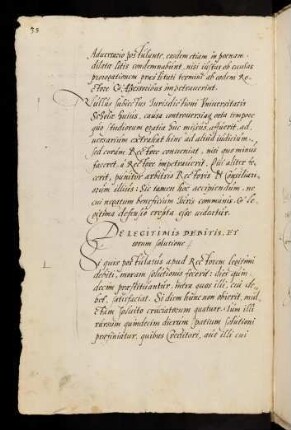 35
Aduersario postulante, eundem etiam in poenam
dilatæ litis condemnabunt, nisi iustas ob causas
prorogationem præstituti termini ab eodem Re,
ctore & Assessoribus impetrauerint.
Nullus subiectus Iurisdictioni Vniuersitatis
Scholæ huius, causa controuersiaque orta tempore
quo studiorum gratia huc missus affuerit, ad,
uersarium extrahat hinc ad aliud iudicium,
sed coram Rectore conueniat, nisi quo minus
faceret, a Rectore impetrauerit. Qui aliter fe,
cerit, punitur arbitrio Rectoris & Consiliari,
orum illius: Sic tamen hoc accipiendum, ne
cui negatum beneficium Iuris communis & le,
gitima defensio erepta esse uideatur.
DE LEGITIMIS DEBITIS, ET
eorum solutione
Si quis postulatus apud Rectorem legitimi
debiti, moram solutionis fecerit: dies quin,
decim præstituantur, intra quos illi, cui de,
bet, satisfaciat. Si diem hunc non obierit, mul,
ctam soluito cruciatorum quatuor. Tum illi
rursum quindecim dierum spatium solutioni
perfiniatur, quibus Creditori, aut illi cui